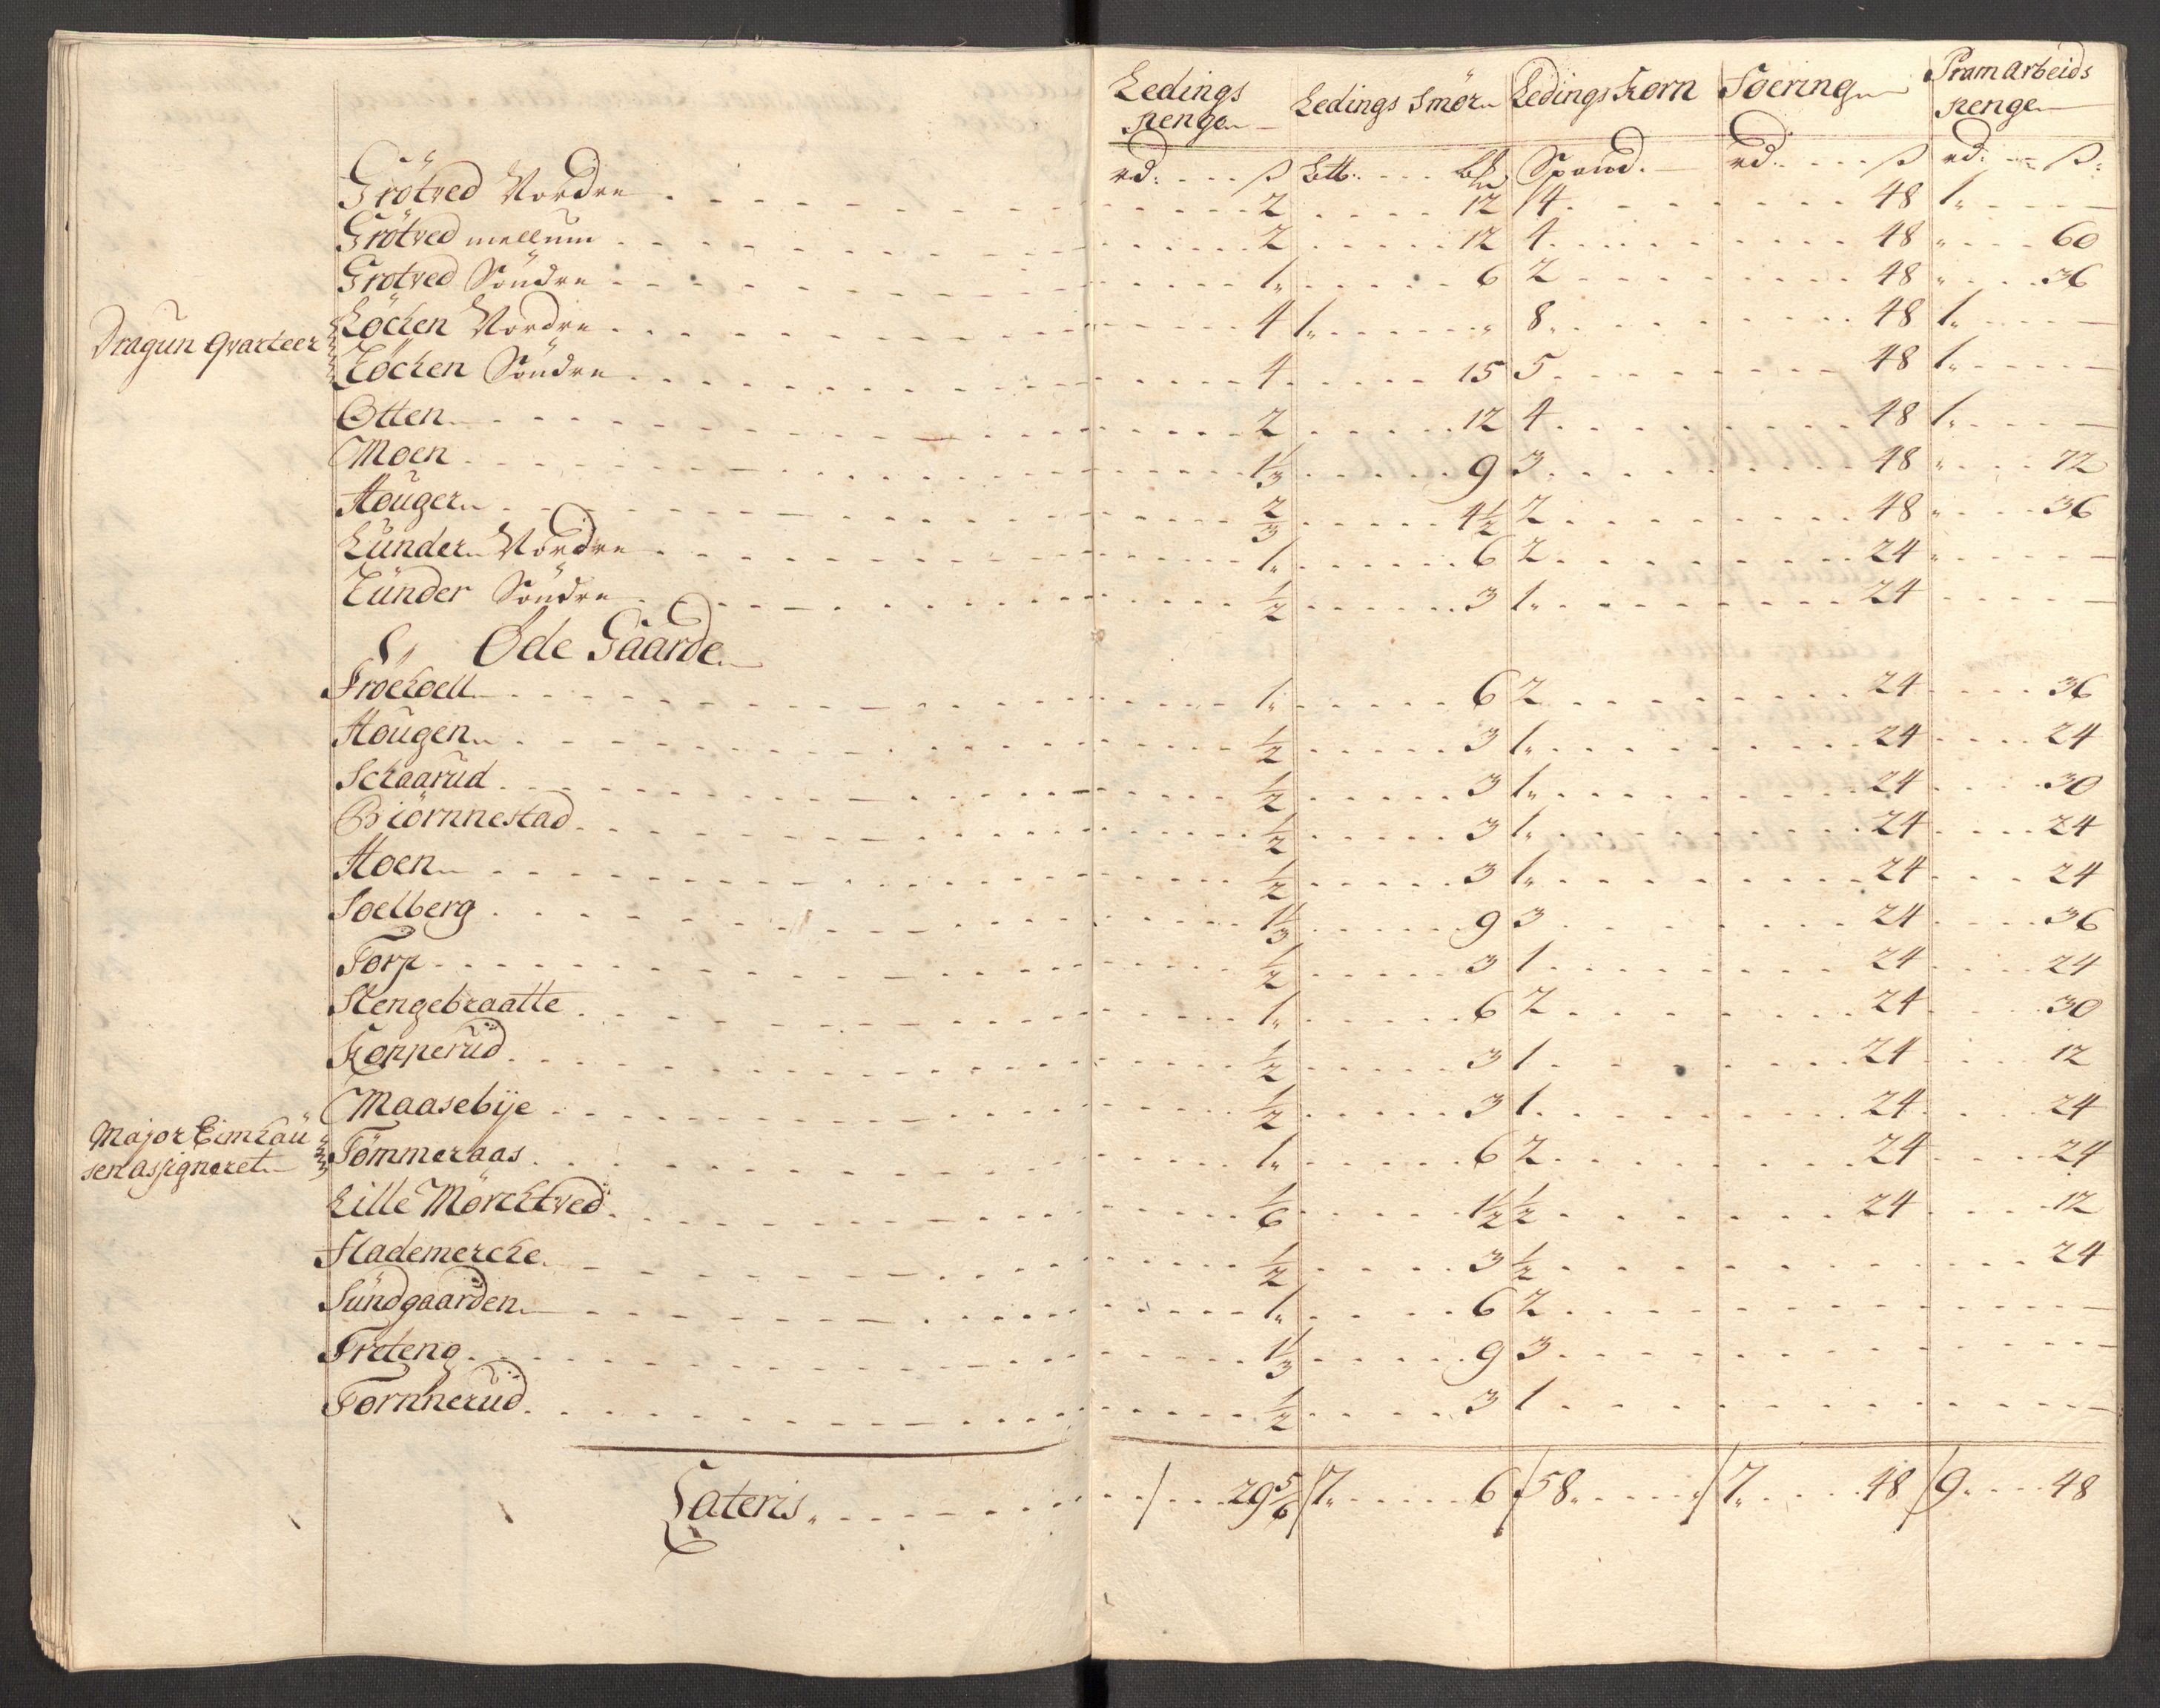 Ledings Penge Ledings Smør Ledings Korn Foering Pramarbeids Penge
rd: ß Btt: Bd Spand. rd: ß rd: ß:
Grötved Nordre 2 12 4 48 1
Grötved mellum 2 12 4 48 " 60
Grötved Söndre 1 6 2 48 " 36
Dragun Qvarteer
Köchen Nordre 4 1 " 8 48 1
Köchen Söndre 4 15 5 48 1
Otten 2 12 4 48 1
Moen 1 1/3 9 3 48 " 72
Houger 2/3 4 1/2 2 48 " 36
Lunder Nordre 1 6 2 24 "
Lunder Söndre 1/2 3 1 24
Øde Gaarde
Fröchoell 1 6 2 24 36
Hougen 1/2 3 1 24 24
Schaarud 1/2 3 1 24 30
Biörnnestad 1/2 3 1 24 24
Hoen 1/2 3 1 24 24
Soelberg 1 1/3 9 3 24 36
Torp 1/2 3 1 24 24
Stengebraatte 1 6 2 24 30
Kopperud 1/2 3 1 24 12
Maasebije 1/2 3 1 24 24
Major Eimhau
sen assigneret
Tömmeraas 1 6 2 24 24
Lille Mörchtved 1/6 1 1/2 1/2 24 12
Flademerche 1/2 3 1/2 24
Sundgaarden 1 6 2
Treteng 1 1/3 9 3
Tornnerud 1/2 3 1
Lateris 29 5/6 7 6 58 " 7 48 9 48